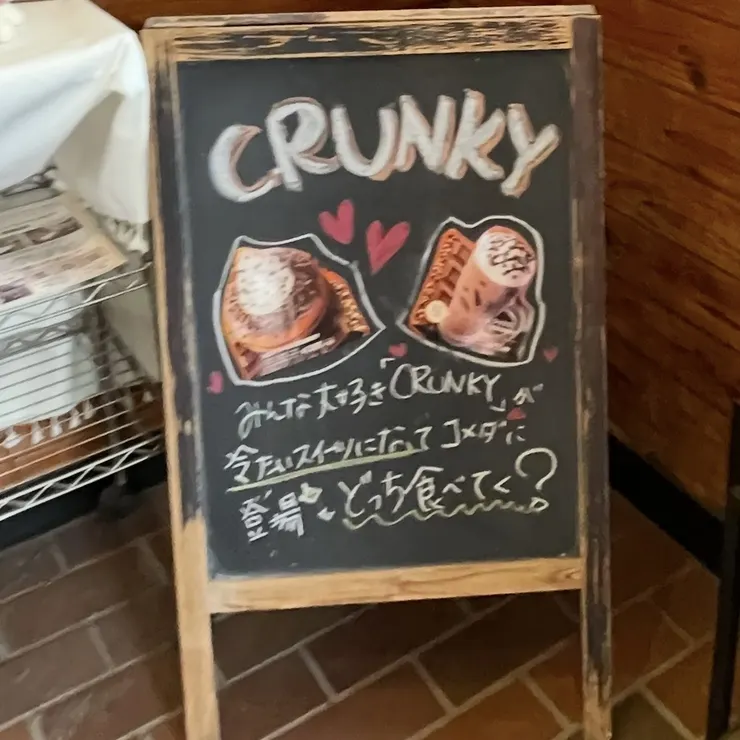 CRUNKY
みんな大好き「CRUNKY」が
冷たいスイーツになってコメダに
登場 どっち食べてく?